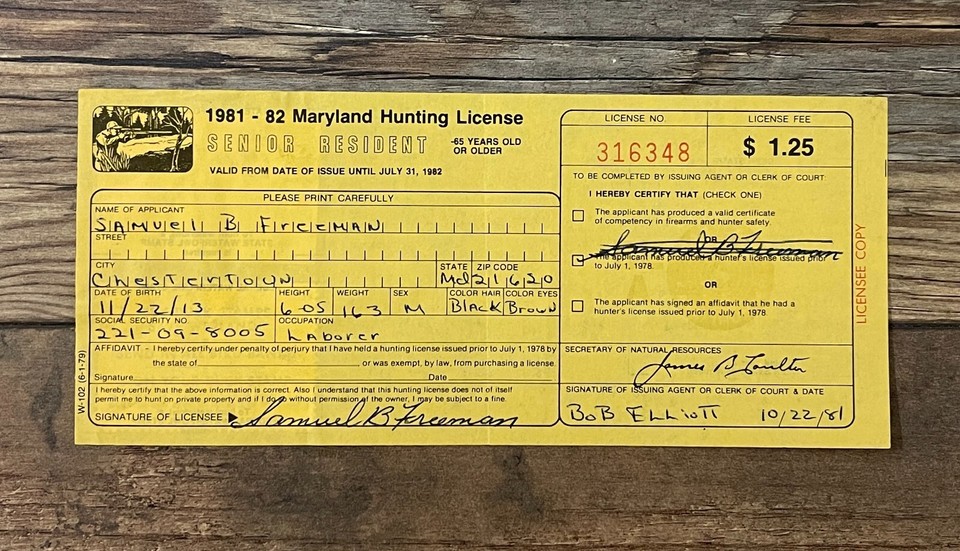 1981 - 82 Maryland Hunting License
SENIOR RESIDENT
-65 YEARS OLD
OR OLDER
VALID FROM DATE OF ISSUE UNTIL JULY 31, 1982
PLEASE PRINT CAREFULLY
NAME OF APPLICANT
SAMUEll B FrEEMAN
STREET
CITY STATE ZIP CODE
CHESTERTOWN Md 21620
DATE OF BIRTH HEIGHT WEIGHT SEX COLOR HAIR COLOR EYES
11/22/13 6 05 163 M Black Brown
SOCIAL SECURITY NO. OCCUPATION
221-09-8005 LAborer
AFFIDAVIT - I hereby certify under penalty of perjury that I have held a hunting license issued prior to July 1, 1978 by
the state of or was exempt, by law, from purchasing a license.
Signature Date
I hereby certify that the above information is correct. Also I understand that this hunting license does not of itself
permit me to hunt on private property and if I do without permission of the owner, I may be subject to a fine.
SIGNATURE OF LICENSEE Samuel B Freeman
W-102 (6-1-79)
LICENSE NO. LICENSE FEE
316348 $ 1.25
TO BE COMPLETED BY ISSUING AGENT OR CLERK OF COURT:
I HEREBY CERTIFY THAT (CHECK ONE)
The applicant has produced a valid certificate
of competency in firearms and hunter safety.
OR
Samuel B Freeman
The applicant has produced a hunter's license issued prior
to July 1, 1978.
OR
The applicant has signed an affidavit that he had a
hunter's license issued prior to July 1, 1978.
SECRETARY OF NATURAL RESOURCES
James B Coulter
SIGNATURE OF ISSUING AGENT OR CLERK OF COURT & DATE
BoB EllioTT 10/22/81
LICENSEE COPY